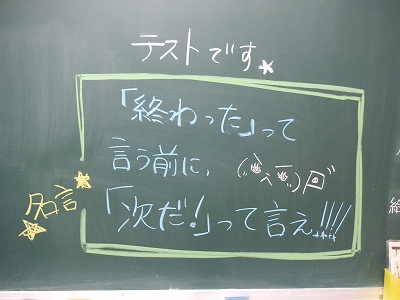 テストです
「終わった」って
言う前に、
「次だ!」って言え!!!!
名言